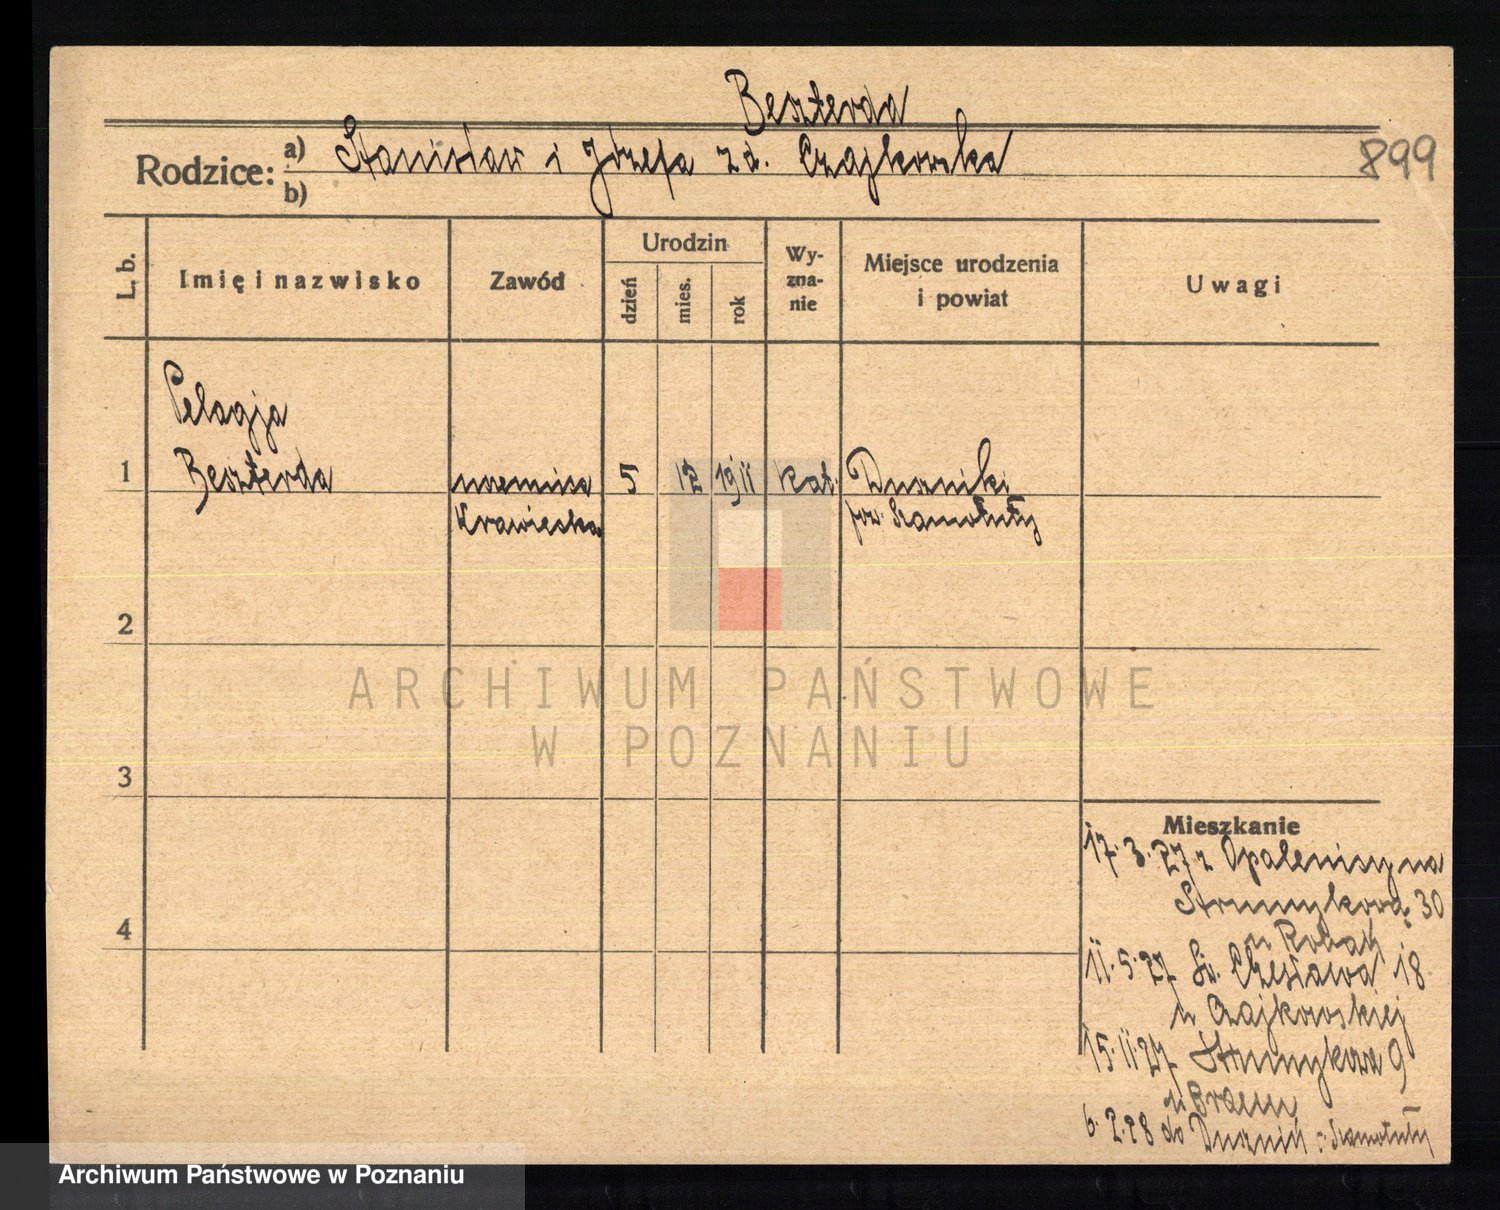 Beszterda
Rodzice: a) Stanisław i Józefa zd. Czajkowska
b)
899
L. b.
Imię i nazwisko
Zawód
Urodzin
dzień
mies.
rok
Wy-
zna-
nie
Miejsce urodzenia
i powiat
Uwagi
Pelagja
1 Beszterda uczennica 5 12 1911 kat. Duszniki
krawiecka pow. Szamotuły
2
ARCHIWUM PAŃSTWOWE
W POZNANIU
3
Mieszkanie
17.3.27 z Opalenicy na
Strumykową 30
u
4
11.5.27 Św. Czesława 18
u Czajkowskiej
15.11.27 Strumykowa 9
u
6.2.28 do Duszniki Szamotuły
Archiwum Państwowe w Poznaniu